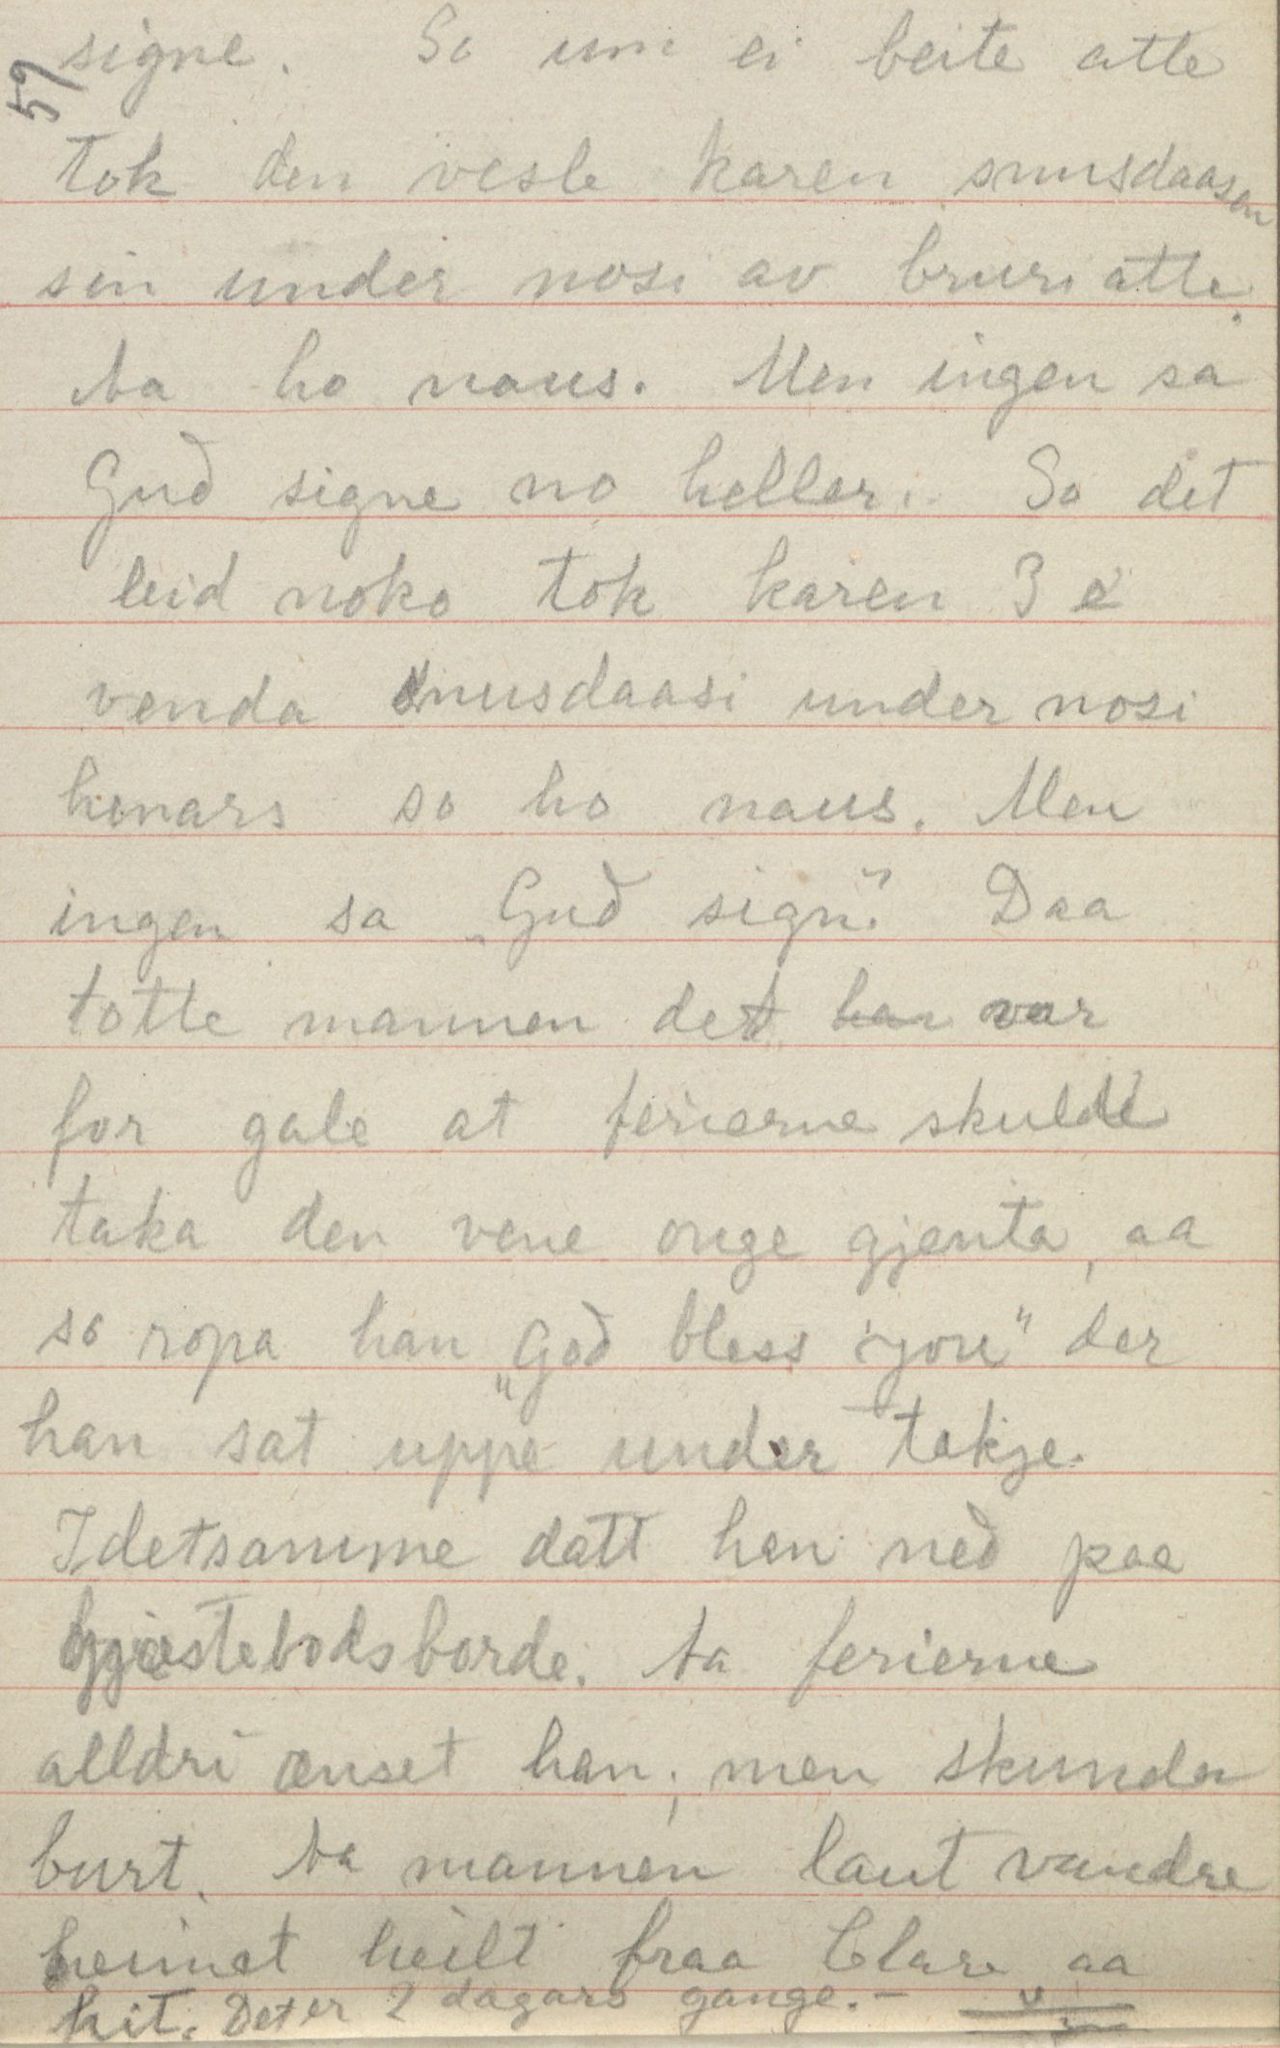 57
signe. So um ei beite atte
tok den vesle karen snusdaasen
sin under nosi av bruri atte.
Aa ho naus. Men ingen sa
Gud signe no heller. So det
leid noko tok karen 3 e
venda snusdaasi under nosi
henars so ho naus. Men
ingen sa „Gud sign". Daa
totte mannen det han var
for gale at ferierne skulde
taka den vene onge gjenta, aa
so ropa han „God bless you" der
han sat uppe under tekje.
Idetsamme datt han ned paa
gjestebodsborde. Aa ferierne
alldri ænset han, men skunda
burt. Aa mannen laut vandre
heimat heilt fraa Clare aa
hit. Det er 2 dagars gange. –